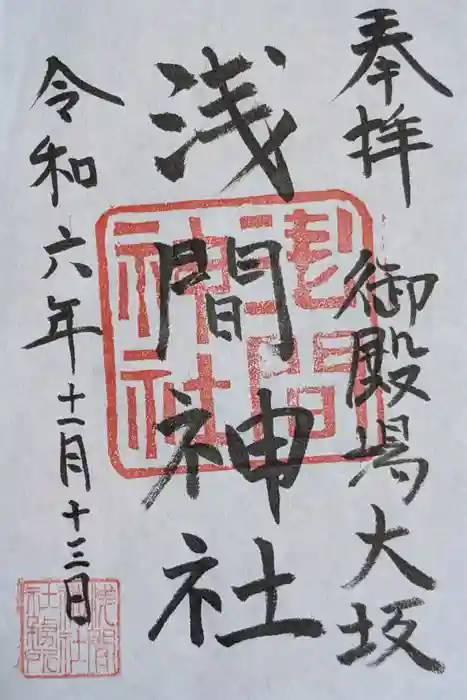 奉拝
御殿場大坂
浅間神社
令和六年十一月十三日
浅間神社
浅間神社社務所